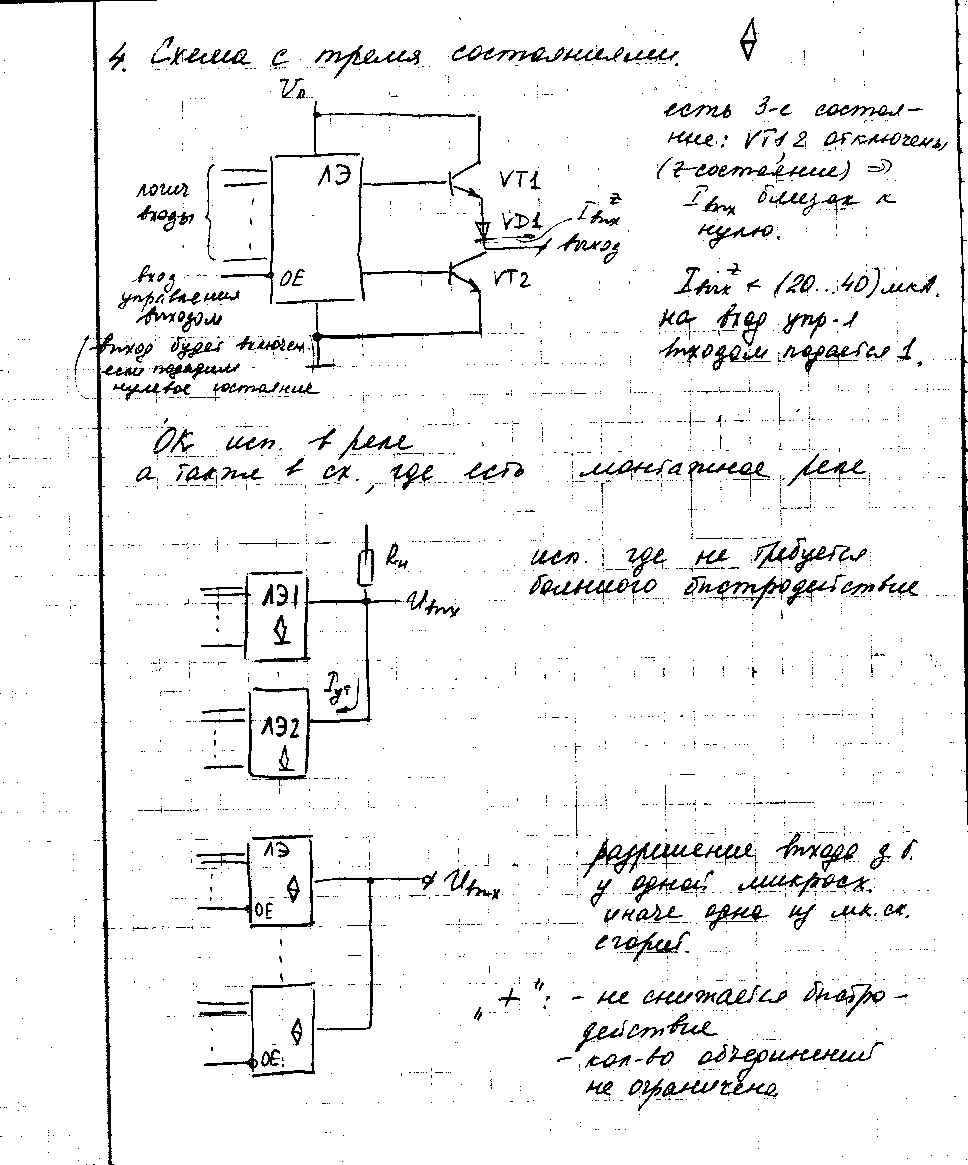 4. Схема с тремя состояниями.
Uп
есть 3-е состоя-
ние: VT1,2 отключены
(z-состояние) ⇒
Iвых близок к
нулю.
ЛЭ
VT1
логич
входы
VD1
Iвых z
выход
вход
управления
выходом
OE
VT2
Iвых z + (20...40) мкА.
на вход упр-я
выходом подается 1.
(выход будет включен
если подадим
нулевое состояние
ОК исп. в реле
а также в сх., где есть монтажное реле
Rн
ЛЭ1
Uвых
исп. где не требуется
большого быстродействие
Iут
ЛЭ2
ЛЭ
OE
Uвых
разрешение выхода д.б.
у одной микросх.
иначе одна из мк.сх.
сгорит.
OE
„+": - не снижается быстро-
действие
- кол-во объединений
не ограничено